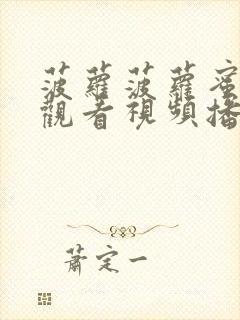 菠蘿菠蘿蜜
觀看視頻播
蕭定一